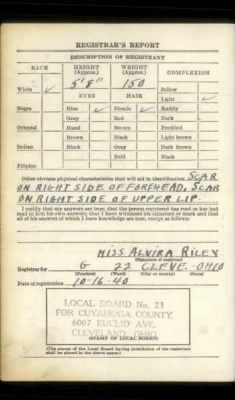 REGISTRAR'S REPORT
DESCRIPTION OF REGISTRANT
RACE
HEIGHT (Approx.)
WEIGHT (Approx.)
COMPLEXION
5' 8"
150
Sallow
White ✓
EYES
HAIR
Light ✓
Negro
Blue ✓
Blonde ✓
Ruddy
Gray
Red
Dark
Oriental
Hazel
Brown
Freckled
Brown
Black
Light brown
Indian
Black
Gray
Dark brown
Bald
Black
Filipino
Other obvious physical characteristics that will aid in identification SCAR
ON RIGHT SIDE OF FOREHEAD. SCAR
ON RIGHT SIDE OF UPPER LIP.
I certify that my answers are true; that the person registered has read or has had
read to him his own answers; that I have witnessed his signature or mark and that
all of his answers of which I have knowledge are true, except as follows:
MISS ALVIRA RILEY
(Signature of registrar)
Registrar for G 22 CLEVE. OHIO
(Precinct) (Ward) (City or county) (State)
Date of registration 10-16-40
LOCAL BOARD No. 23
FOR CUYAHOGA COUNTY,
6007 EUCLID AVE.
CLEVELAND, OHIO
(STAMP OF LOCAL BOARD)
(The stamp of the Local Board having jurisdiction of the registrant
shall be placed in the above space.)